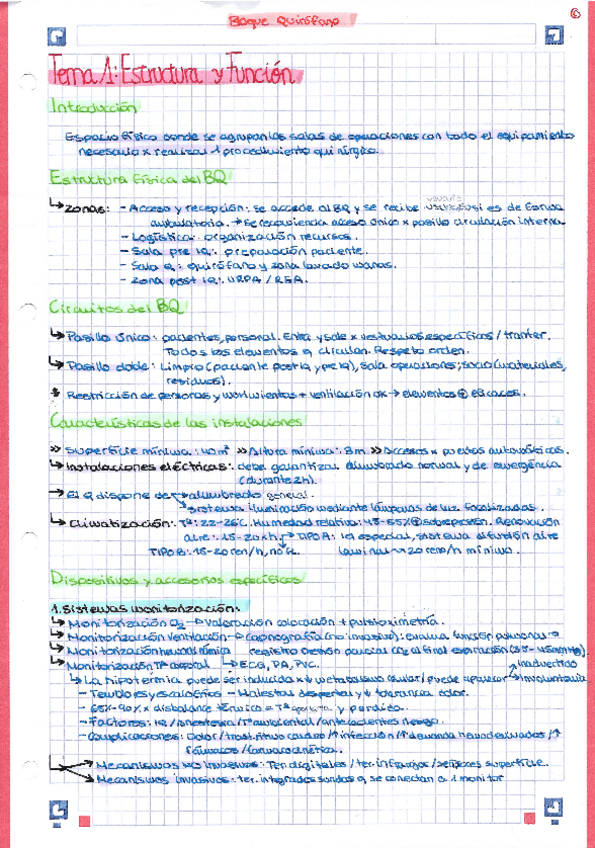 Boque Quirófano
6
Tema 1: Estructura y Función
Introducción
Espacio físico donde se agrupan las salas de operaciones con todo el equipamiento
necesario x realizar 1 procedimiento quirúrgico.
Estructura física del BQ
↳ Zonas: - Acceso y recepción: se accede al BQ y se recibe usuario si es de forma
ambulatoria. → Se recomienda acceso único x pasillo circulación interna
- Logística: organización recursos.
- Sala pre IQ: preparación paciente.
- Sala Q: quirófano y zona lavado manos.
- Zona post IQ: URPA / REA.
Circuitos del BQ
↳ Pasillo único: pacientes, personal. Entra y sale x vestuarios específicos / transfer.
Todos los elementos q circulan. Respeto orden.
↳ Pasillo doble: Limpio (paciente post iq y pre iq), sala operaciones; sucio (materiales,
residuos).
* Restricción de personas y movimientos + ventilación ok → elementos ⊕ eficaces.
Características de las instalaciones
>> Superficie mínima: 40m² >> Altura mínima: 3m >> Accesos x puertas automáticas.
↳ Instalaciones eléctricas: debe garantizar alumbrado normal y de emergencia
(durante 2h).
→ El q dispone de → alumbrado general.
sistema iluminación mediante lámparas de luz focalizadas.
↳ Climatización: Tª: 22-26ºC. Humedad relativa: 45-55% ⊕ sobrepresión. Renovación
aire: 15-20 x h. → TIPO A: IQ especial, sistema difusión aire
TIPO B: 15-20 ren/h, no IQ. laminar ~ 20 reno/h mínimo.
Dispositivos y accesorios específicos
1. Sistemas monitorización:
↳ Monitorización O₂ → valoración coloración + pulsioximetría.
↳ Monitorización ventilación → capnografía (no invasivo): evalúa función pulmonar →
↳ Monitorización hemodinámica registro presión parcial CO₂ al final espiración (35-45mmHg).
↳ Monitorización Tª corporal ↳ ECG, PA, PVC. inadvertido
↳ La hipotermia puede ser inducida x ↓ metabolismo celular / puede aparecer → involuntaria
- Temblores y escalofríos - Malestar despertar y ↓ tolerancia dolor.
- 65%-90% x disbalance térmico = Tª aportada y perdida.
- Factores: IQ / anestesia / Tª ambiental / antecedentes riesgo.
- Complicaciones: dolor / trast. ritmo cardíaco / ↑ infección / ↑ demanda hemoderivados / ↑
fármacos /
Mecanismos NO invasivos: Ter. digitales / ter. infrarrojos / sensores superficie.
Mecanismos invasivos: ter. integrados sondas q se conectan a 1 monitor